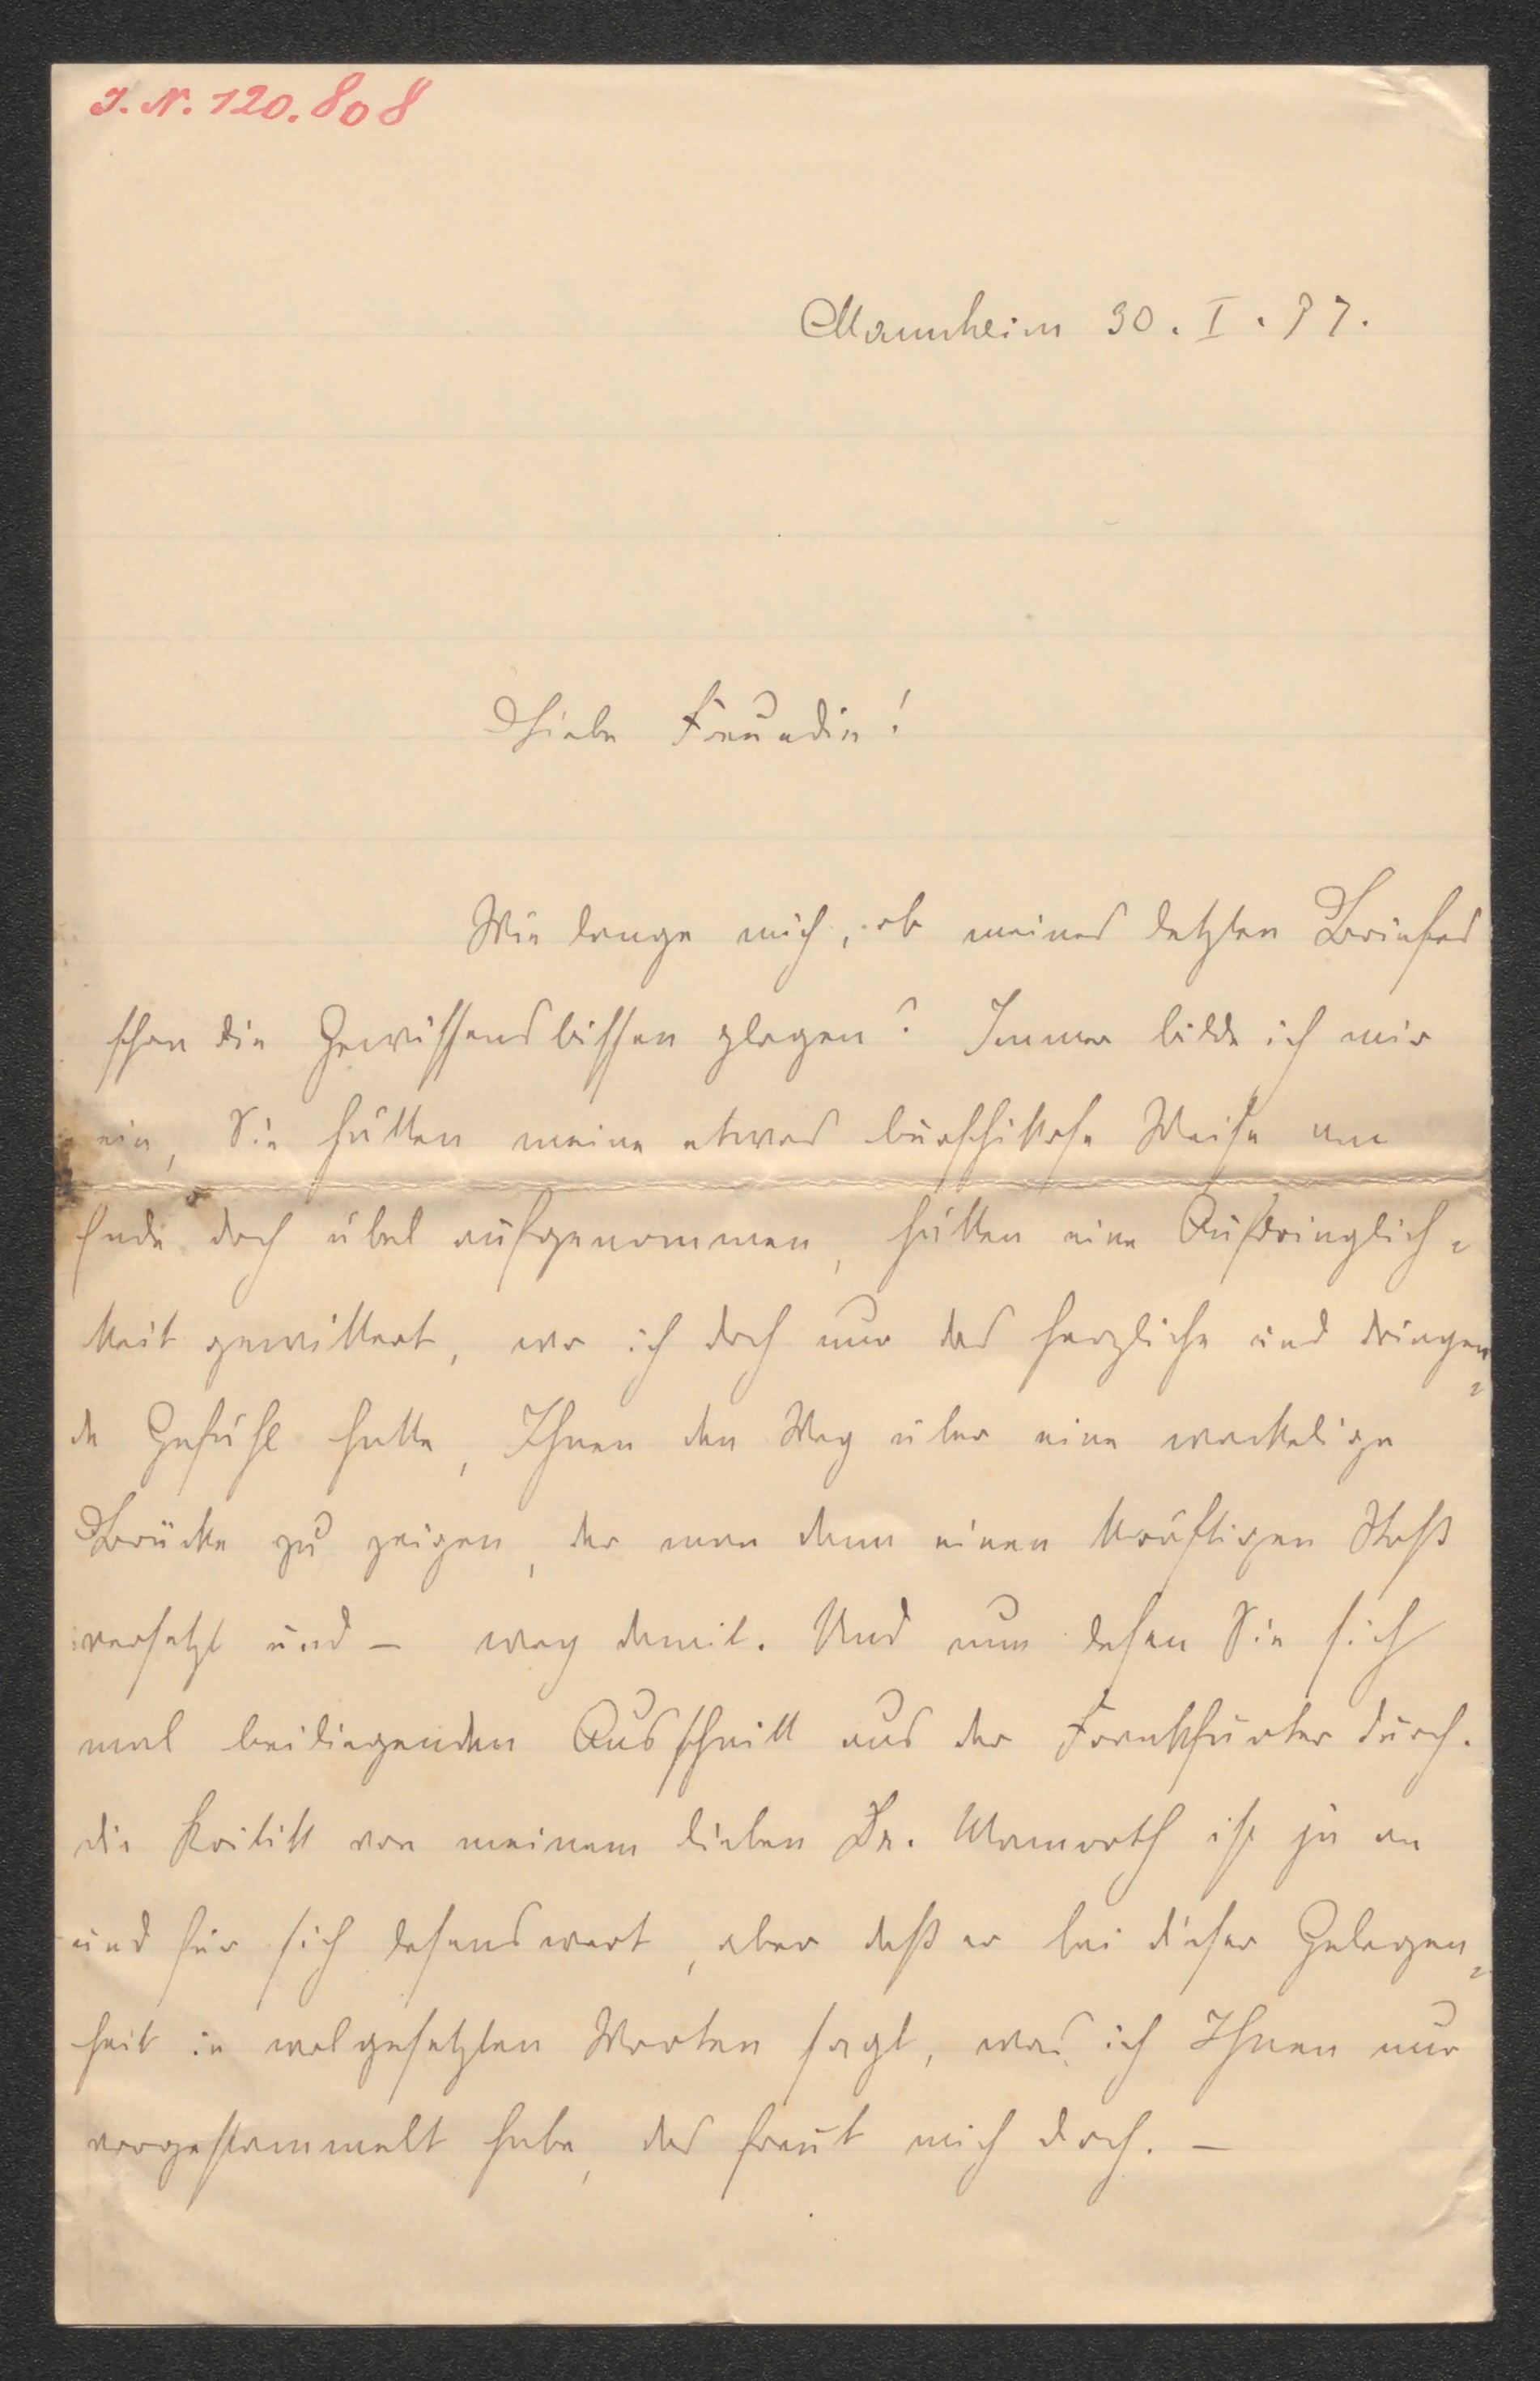 I. N. 120.808
Mannheim 30. I. 97.
Liebe Freundin!
Wie lange mich, ob meines letzten Briefes
schon die Gewissensbissen plagen? Immer bilde ich mir
ein, Sie hätten meine etwas burschikose Weise am
Ende doch übel aufgenommen, hätten eine Aufdringlich-
keit gewittert, wo ich doch nur das herzliche und dringen-
de Gefühl hatte, Ihnen den Weg über eine wackelige
Brücke zu zeigen, der man dann einen kräftigen Stoß
versetzt und – weg damit. Und nun lesen Sie sich
mal beiliegenden Ausschnitt aus der Frankfurter durch.
die Kritik von meinem lieben Dr. Mamroth ist ja an
und für sich lesenswert, aber daß er bei dieser Gelegen-
heit in wolgesetzten Worten sagt, was ich Ihnen nur
vorgestammelt habe, das freut mich doch. –